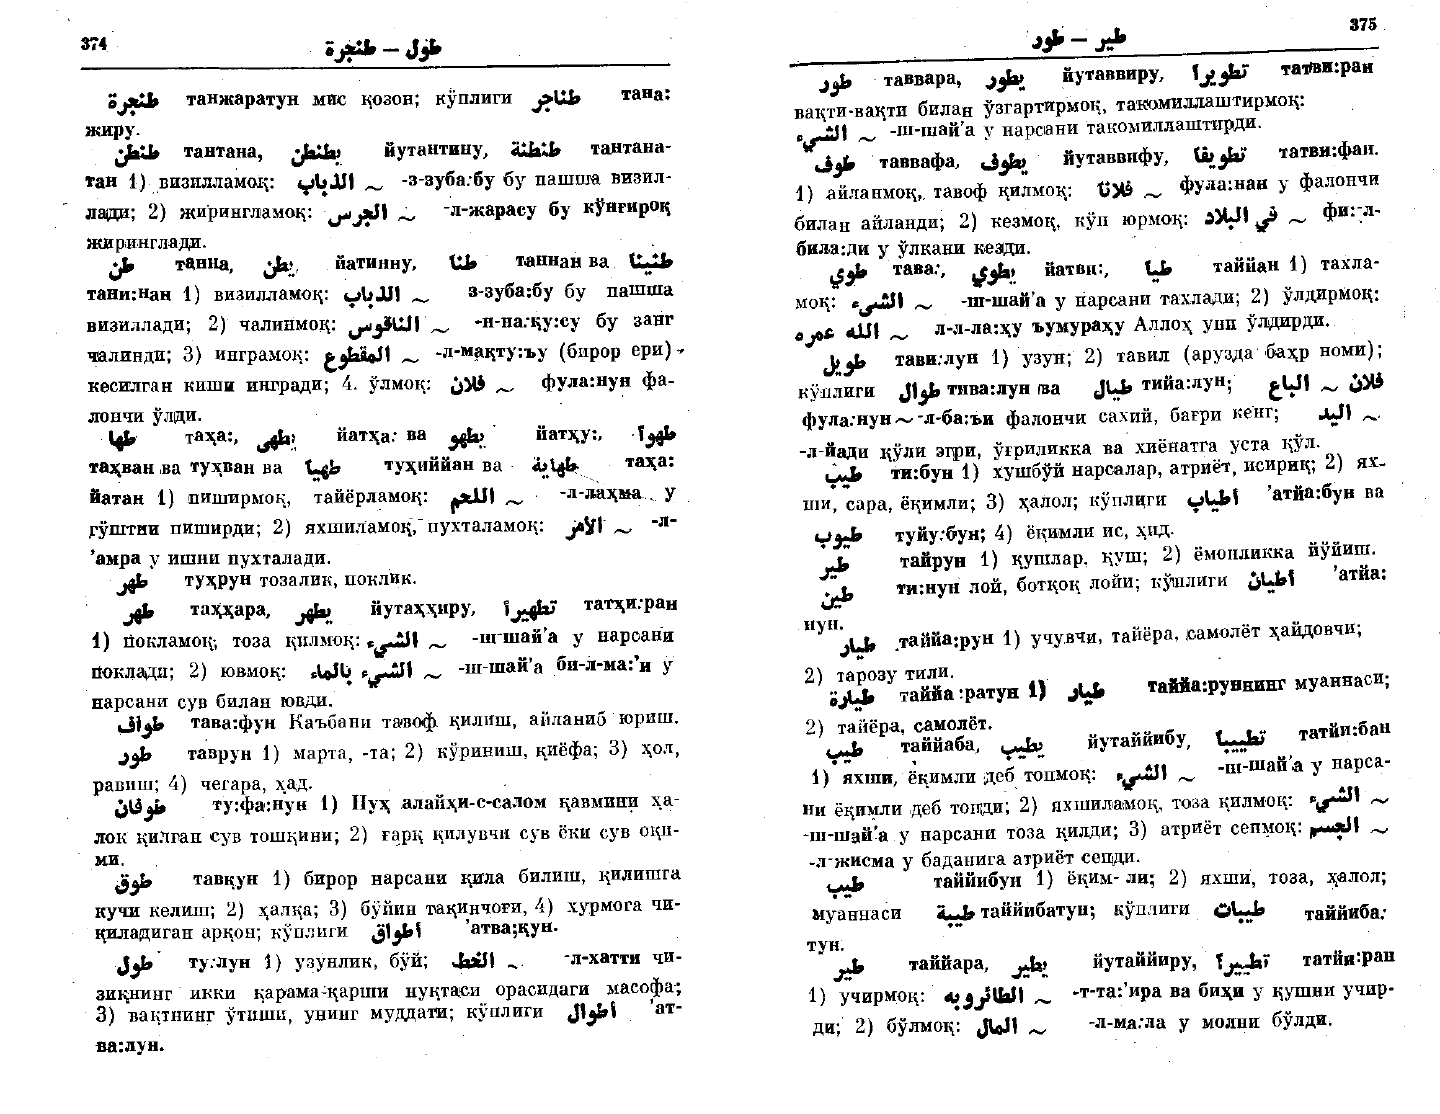 374
طول — طنجرة
طنجرة танжаратун мис қозон; кўплиги طناجر тана:
жиру.
طنطن тантана, يطنطن йутантину, طنطنة тантана-
тан 1) визилламоқ: الذباب ~ -з-зуба:бу бу пашша визил-
лади; 2) жирингламоқ: الجرس ~ -л-жарасу бу кўнғироқ
жиринглади.
طن танна, يطن йатинну, طنا таннан ва طنينا
тани:нан 1) визилламоқ: الذباب ~ з-зуба:бу бу пашша
визиллади; 2) чалинмоқ: الناقوس ~ -н-на:қу:су бу занг
чалинди; 3) инграмоқ: المقطوع ~ -л-мақту:ъу (бирор ери)
кесилган киши ингради; 4. ўлмоқ: فلان ~ фула:нун фа-
лончи ўлди.
طها таҳа:, يطهى йатҳа: ва يطهو йатҳу:, طهوا
таҳван ва туҳван ва طهيا туҳиййан ва طهاية таҳа:
йатан 1) пиширмоқ, тайёрламоқ: اللحم ~ -л-лаҳма у
гўштни пиширди; 2) яхшиламоқ, пухталамоқ: الأمر ~ -л-
’амра у ишни пухталади.
طهر туҳрун тозалик, поклик.
طهر таҳҳара, يطهر йутаҳҳиру, تطهيرا татҳи:ран
1) покламоқ, тоза қилмоқ: الشيء ~ -ш-шай’а у нарсани
поклади; 2) ювмоқ: الشيء بالماء ~ -ш-шай’а би-л-ма:’и у
нарсани сув билан ювди.
طواف тава:фун Каъбани тавоф қилиш, айланиб юриш.
طور таврун 1) марта, -та; 2) кўриниш, қиёфа; 3) ҳол,
равиш; 4) чегара, ҳад.
طوفان ту:фа:нун 1) Нуҳ алайҳи-с-салом қавмини ҳа-
лок қилган сув тошқини; 2) ғарқ қилувчи сув ёки сув оқи-
ми.
طوق тавқун 1) бирор нарсани қила билиш, қилишга
кучи келиш; 2) ҳалқа; 3) бўйин тақинчоғи, 4) хурмога чи-
қиладиган арқон; кўплиги أطواق ’атва:қун.
طول ту:лун 1) узунлик, бўй; الخط ~ -л-хатти чи-
зиқнинг икки қарама-қарши нуқтаси орасидаги масофа;
3) вақтнинг ўтиши, унинг муддати; кўплиги أطوال ’ат-
ва:лун.
375
طير — طور
طور таввара, يطور йутаввиру, تطويرا татви:ран
вақти-вақти билан ўзгартирмоқ, такомиллаштирмоқ:
الشيء ~ -ш-шай’а у нарсани такомиллаштирди.
طوف таввафа, يطوف йутаввифу, تطويفا татви:фан.
1) айланмоқ, тавоф қилмоқ: فلانا ~ фула:нан у фалончи
билан айланди; 2) кезмоқ, кўп юрмоқ: في البلاد ~ фи:-л-
била:ди у ўлкани кезди.
طوي тава:, يطوي йатви:, طيا таййан 1) тахла-
моқ: الشيء ~ -ш-шай’а у нарсани тахлади; 2) ўлдирмоқ:
الله عمره ~ л-л-ла:ҳу ъумураҳу Аллоҳ уни ўлдирди.
طويل тави:лун 1) узун; 2) тавил (арузда баҳр номи);
кўплиги طوال тива:лун ва طيال тийа:лун; فلان ~ الباع
фула:нун ~ -л-ба:ъи фалончи сахий, бағри кенг; اليد ~
-л-йади қўли эгри, ўғриликка ва хиёнатга уста қўл.
طيب ти:бун 1) хушбўй нарсалар, атриёт, исириқ; 2) ях-
ши, сара, ёқимли; 3) ҳалол; кўплиги أطياب ’атйа:бун ва
طيوب туйу:бун; 4) ёқимли ис, ҳид.
طير тайрун 1) қушлар, қуш; 2) ёмонликка йўйиш.
طين ти:нун лой, ботқоқ лойи; кўплиги أطيان ’атйа:
нун.
طيار таййа:рун 1) учувчи, тайёра, самолёт ҳайдовчи;
2) тарозу тили.
طيارة таййа:ратун 1) طيار таййа:руннинг муаннаси;
2) тайёра, самолёт.
طيب таййаба, يطيب йутаййибу, تطييبا татйи:бан
1) яхши, ёқимли деб топмоқ: الشيء ~ -ш-шай’а у нарса-
ни ёқимли деб топди; 2) яхшиламоқ, тоза қилмоқ: الشيء ~
-ш-шай’а у нарсани тоза қилди; 3) атриёт сепмоқ: الجسم ~
-л-жисма у баданига атриёт сепди.
طيب таййибун 1) ёқим- ли; 2) яхши, тоза, ҳалол;
муаннаси طيبة таййибатун; кўплиги طيبات таййиба:
тун.
طير таййара, يطير йутаййиру, تطييرا татйи:ран
1) учирмоқ: الطائر وبه ~ -т-та:’ира ва биҳи у қушни учир-
ди; 2) бўлмоқ: المال ~ -л-ма:ла у молни бўлди.